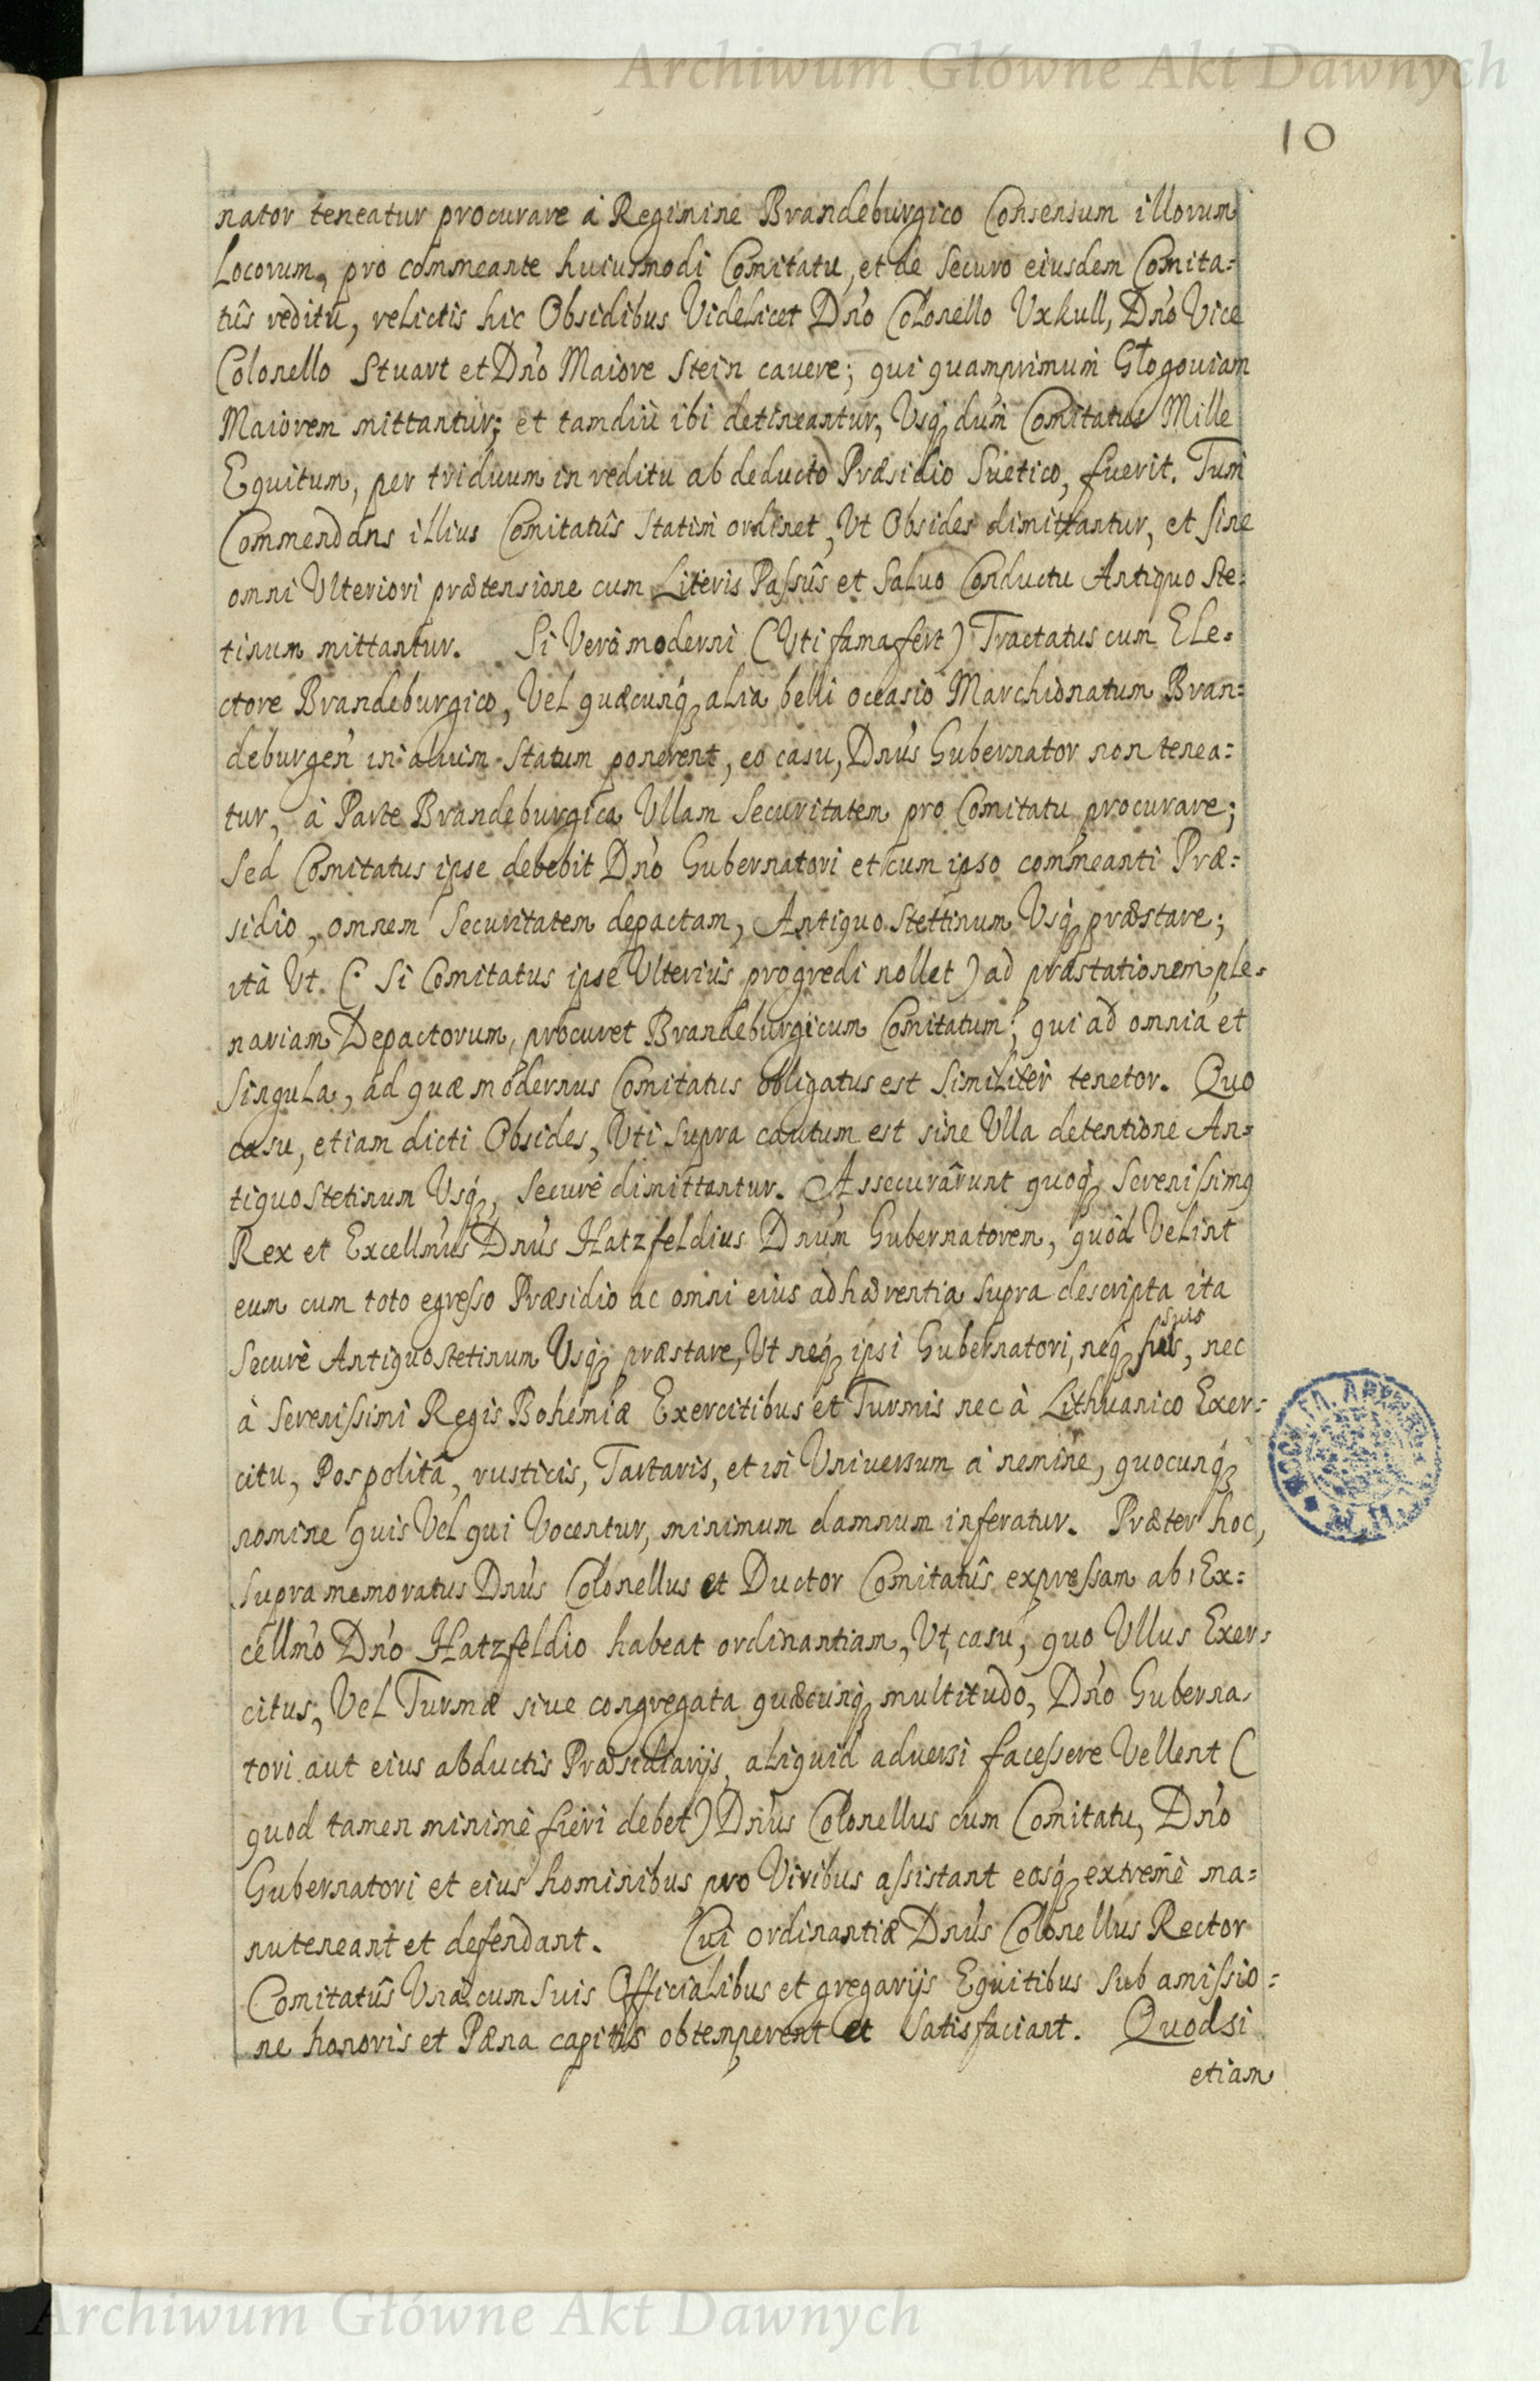 Archiwum Główne Akt Dawnych
10
nator teneatur procurare á Regimine Brandeburgico Consensum illorum
Locorum, pro commeante huiusmodi Comitatu, et de Securo eiusdem Comita=
tûs reditu, relictis hic Obsidibus Videlicet Dn̄o Colonello Vxkull, Dn̄o Vice
Colonello Stuart et Dn̄o Maiore Stein cavere; qui quamprimum Glogouiam
Maiorem mittantur; et tamdiù ibi detineantur, Usq́ꝫ dum Comitatus Mille
Equitum, per triduum in reditu ab deducto Præsidio Suetico, fuerit. Tum
Commendans illius Comitatûs Statim ordinet, Vt Obsides dimittantur, et sine
omni Vlteriori prætensione cum Literis Passûs et Saluo Conductu Antiquo Ste=
tinum mittantur. Si Verò moderni (Vti fama fert) Tractatus cum Ele=
ctore Brandeburgico, Vel quæcunq́ꝫ alia belli occasio Marchionatum Bran=
deburgen̄ in alium Statum ponerent, eo casu, Dn̄us Gubernator non tenea=
tur, à Parte Brandeburgica Ullam Securitatem pro Comitatu procurare;
Sed Comitatus ipse debebit Dn̄o Gubernatori et cum ipso commeanti Præ=
sidio, omnem Securitatem depactam, Antiquo Stettinum Usq́ꝫ præstare;
ità Vt. (: Si Comitatus ipse Vlterius progredi nollet) ad præstationem ple=
nariam Depactorum, procuret Brandeburgicum Comitatum; qui ad omnia et
Singula, ad quæ modernus Comitatus obligatus est Similiter tenetor. Quo
casu, etiam dicti Obsides, Vti Supra cautum est sine Ulla detentione An=
tiquo Stetinum Usq́ꝫ, Securè dimittantur. Assecurârunt quoq́ꝫ Serenissimꝰ
Rex et Excellm̄us Dn̄us Hatzfeldius Dnūm Gubernatorem, quòd Velint
eum cum toto egresso Præsidio ac omni eius adhærentia Supra descripta ita
Securè Antiquo Stetinum Usq́ꝫ præstare, Ut neq́ꝫ ipsi Gubernatori, neq́ꝫ suis, nec
à Serenissimi Regis Bohemiæ Exercitibus et Turmis nec à Lithuanico Exer=
citu, Pospolitâ, rusticis, Tartaris, et in Universum a nemine, quocunq́ꝫ
nomine quis Vel qui Vocentur, minimum damnum inferatur. Præter hoc,
Supra memoratus Dn̄us Colonellus et Ductor Comitatûs expressam ab Ex=
cellm̄o Dn̄o Hatzfeldio habeat ordinantiam, Ut, casu, quo Ullus Exer=
citus, Vel Turmæ siue congregata quæcunq́ꝫ multitudo, Dn̄o Guberna=
tori aut eius abductis Præsidiarijs, aliquid adversi facessere Vellent (
quod tamen minimè fieri debet) Dn̄us Colonellus cum Comitatu, Dn̄o
Gubernatori et eius hominibus pro Viribus assistant eosq́ꝫ extremè ma=
nuteneant et defendant. Cui ordinantiæ Dn̄us Colonellus Rector
Comitatûs Unà cum Suis Officialibus et gregarijs Equitibus Sub amissio=
ne honoris et Pæna capitis obtemperent et Satisfaciant. Quodsi
etiam
Archiwum Główne Akt Dawnych